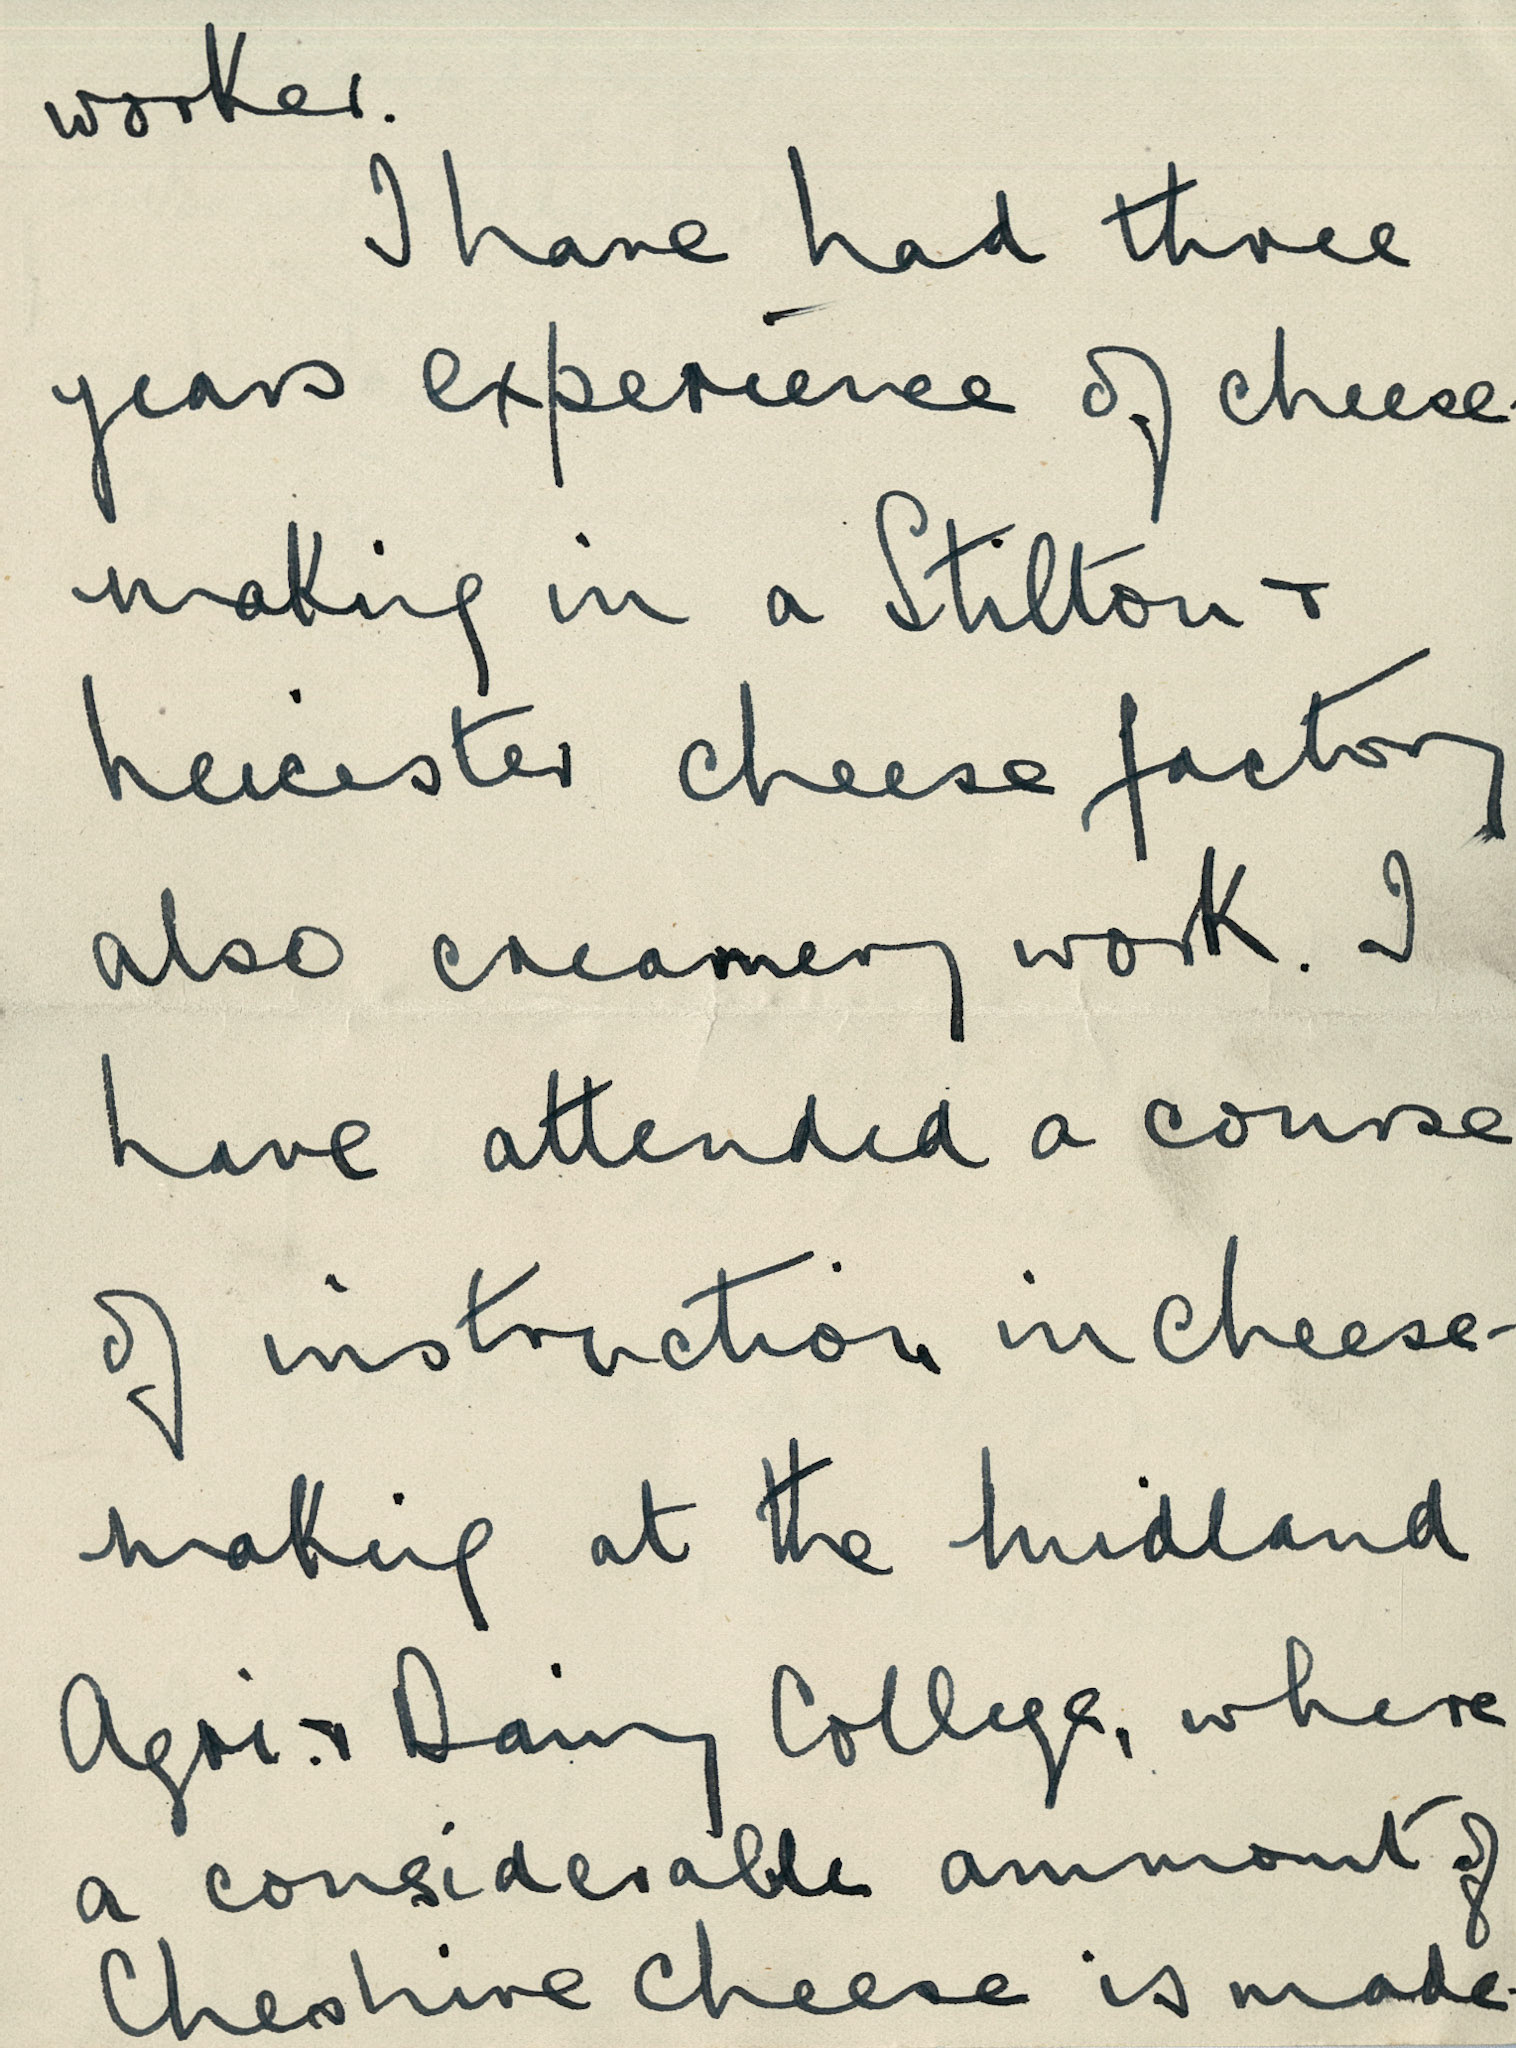 worker.
I have had three
years experience of cheese-
making in a Stilton +
Leicester cheese factory
also creamery work. I
have attended a course
of instruction in cheese-
making at the Midland
Agri. + Dairy College, where
a considerable ammount of
Cheshire cheese is made.